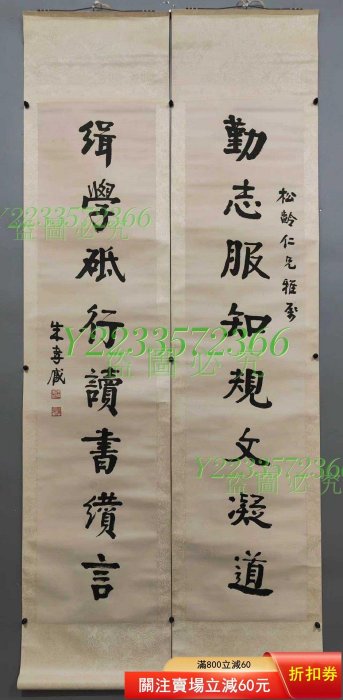 勤志服知規文凝道
松齡仁兄雅屬
緝學砥行讀書纘言
朱孝臧
Y2233572366
盜圖必究
Y2233572366
盜圖必究
Y2233572366
盜圖必究
滿800立減60
關注賣場立減60元
折扣券